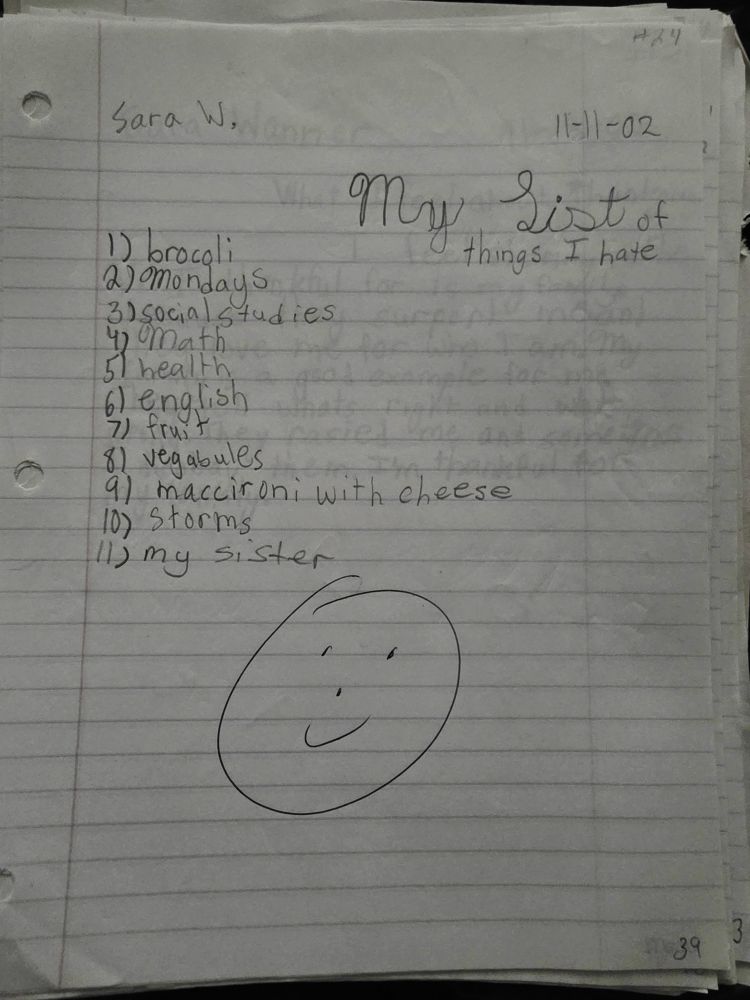 #24
Sara W. 11-11-02
My List of
things I hate
1) brocoli
2) Mondays
3) social studies
4) Math
5) health
6) english
7) fruit
8) vegabules
9) maccironi with cheese
10) storms
11) my sister
39
3